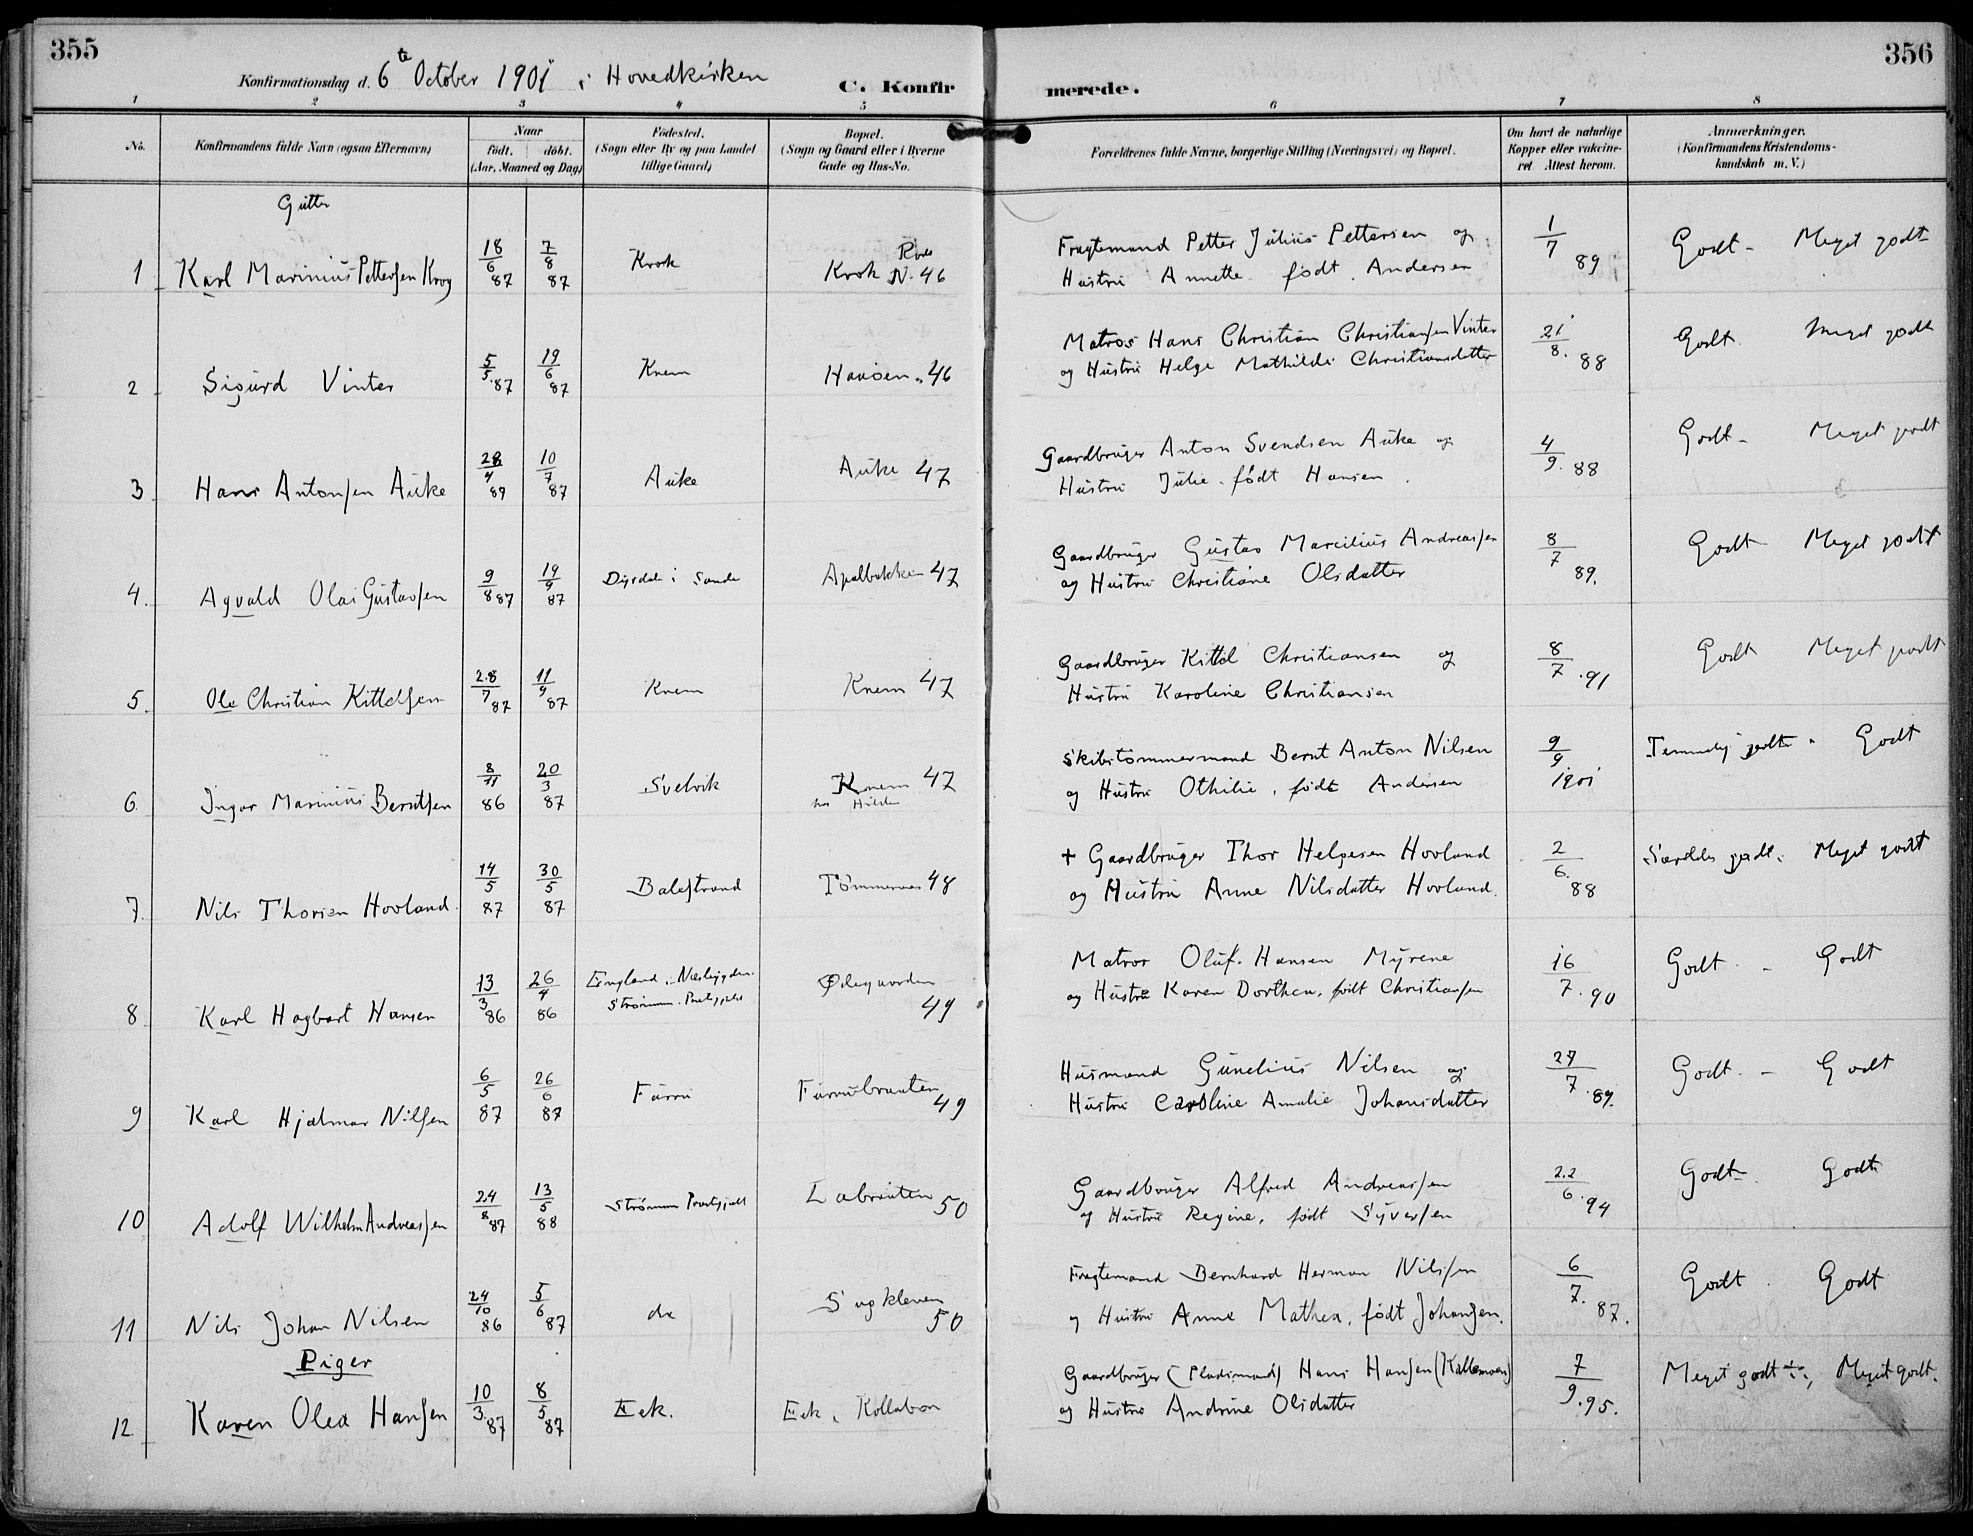 355
356
Konfirmationsdag d. 6te October 1901 i Hovedkirken
C. Konfirmerede.
1 2 3 4 5 6 7 8
No.
Konfirmandens fulde Navn (ogsaa Efternavn)
Naar
födt. döbt.
(Aar, Maaned og Dag)
Födested.
(Sogn eller By og paa Landet
tillige Gaard)
Bopæl.
(Sogn og Gaard eller i Byerne
Gade og Hus-No.
Forældrenes fulde Navne, borgerlige Stilling (Næringsvei) og Bopæl.
Om havt de naturlige
Kopper eller vakcine-
ret. Attest herom.
Anmærkninger.
(Konfirmandens Kristendoms-
kundskab m. V.)
Gutter
1 Karl Marinius Pettersen Krog 18/6 87 7/8 87 Krok Krok N. 46
Fragtemand Petter Julius Pettersen og
Hustru Annette født Andersen 1/7 89 Godt - Meget godt
2 Sigurd Vinter 5/5 87 19/6 87 Knem 46
Matros Hans Christian Christiansen Vinter
og Hustru Helge Mathilde Christiansdatter 21/8. 88 Godt. Meget godt
3 Hans Antonsen Auke 28/4 87 10/7 87 Auke Auke 47
Gaardbruger Anton Svendsen Auke og
Hustru Julie født Hansen 4/9. 88 Godt - Meget godt
4. Agvald Olai Gustavsen 9/8 87 19/9 87 Dyrdal i Sande Apalbakken 47
Gaardbruger Gustav Marcilius Andreassen
og Hustru Christiane Olsdatter 8/7 89. Godt Meget godt
5. Ole Christian Kittelsen 28/7 87 11/9 87 Knem Knem 47
Gaardbruger Kittel Christiansen og
Hustru Karoline Christiansen 8/7 .91 Godt Meget godt
6. Ingar Marinius Berntsen 8/11 86 20/3 87 Svelvik Knem 47
hos
Skibstømmermand Bernt Anton Nilsen
og Hustru Othilie, født Andersen 9/9 1901 Temmelig godt - Godt
7. Nils Thorsen Hovland 14/5 87 30/5 87 Balestrand Tømmeraas 48
+ Gaardbruger Thor Helgesen Hovland
og Hustru Anne Nilsdatter Hovland. 2/6. 88 Særdeles godt. Meget godt
8 Karl Hagbart Hansen 13/3 86 26/4 86 England, Nesbygden.
Strømm. Præstegjeld Ødegaarden 49
Matros Oluf Hansen Myrene
og Hustru Karen Dorthea, født Christiansen 16/7 .90 Godt - Godt
9 Karl Hjalmar Nilsen 6/5 87 26/6 87 Furru Furrubraaten 49
Husmand Gunelius Nilsen og
Hustru Caroline Amalie Johansdatter 27/7 .89. Godt. - Godt
10 Adolf Wilhelm Andreassen 24/8 87 13/5 88 Strømm Præstegjeld 50
Gaardbruger Alfred Andreassen
og Hustru Regine, født Syversen 22/6 .94 Godt - Godt
11 Nils Johan Nilsen 24/10 86 5/6 87 do Sagkleven 50
Fragtemand Bernhard Herman Nilssen
og Hustru Anne Mathea, født Johansen. 6/7. 87. Godt. Godt
Piger
12 Karen Olea Hansen 10/3. 87 8/5 87 Eek. Eek, Kollabon
Gaardbruger (Pladsmand) Hans Hansen (Kallemoen)
og Hustru Andrine Olsdatter 7/9 .95. Meget godt ÷, Meget godt.